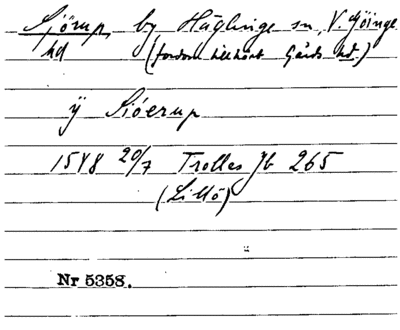 Sjörup, by Häglinge sn, V. Göinge
hd (fordom tillhört Gärds hd.)
ÿ Siöerup
1548 20/7 Trolles Jb 265
(Lillö)
Nr 5358.